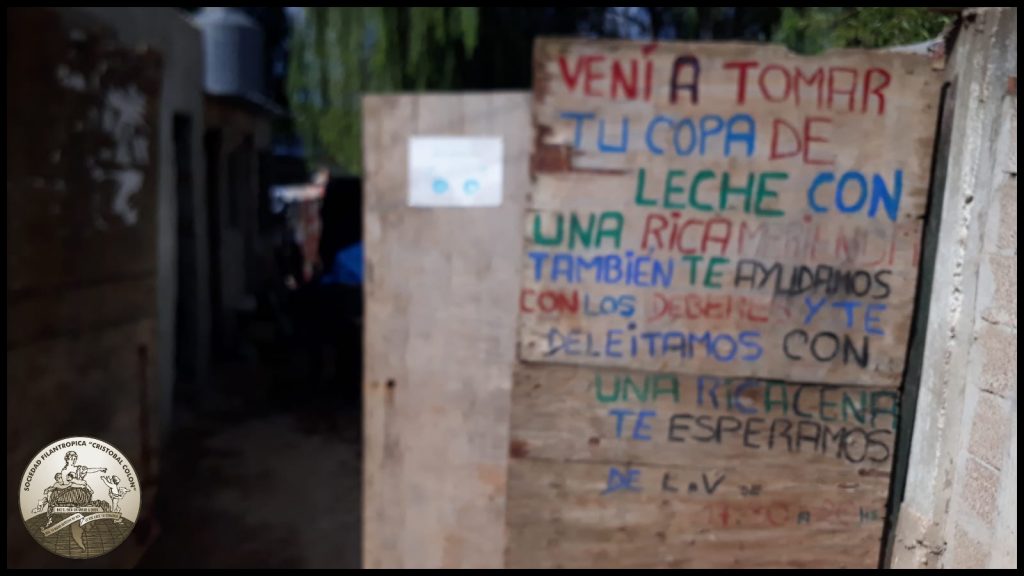 VENÍ A TOMAR
TU COPA DE
LECHE CON
UNA RICA MERIENDA
TAMBIÉN TE AYUDAMOS
CON LOS DEBERES Y TE
DELEITAMOS CON
UNA RICA CENA
TE ESPERAMOS
DE L A V DE
SOCIEDAD FILANTROPICA "CRISTOBAL COLON"